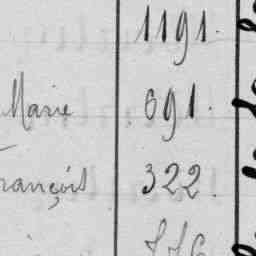 1191.
Marie 691.
François 322.